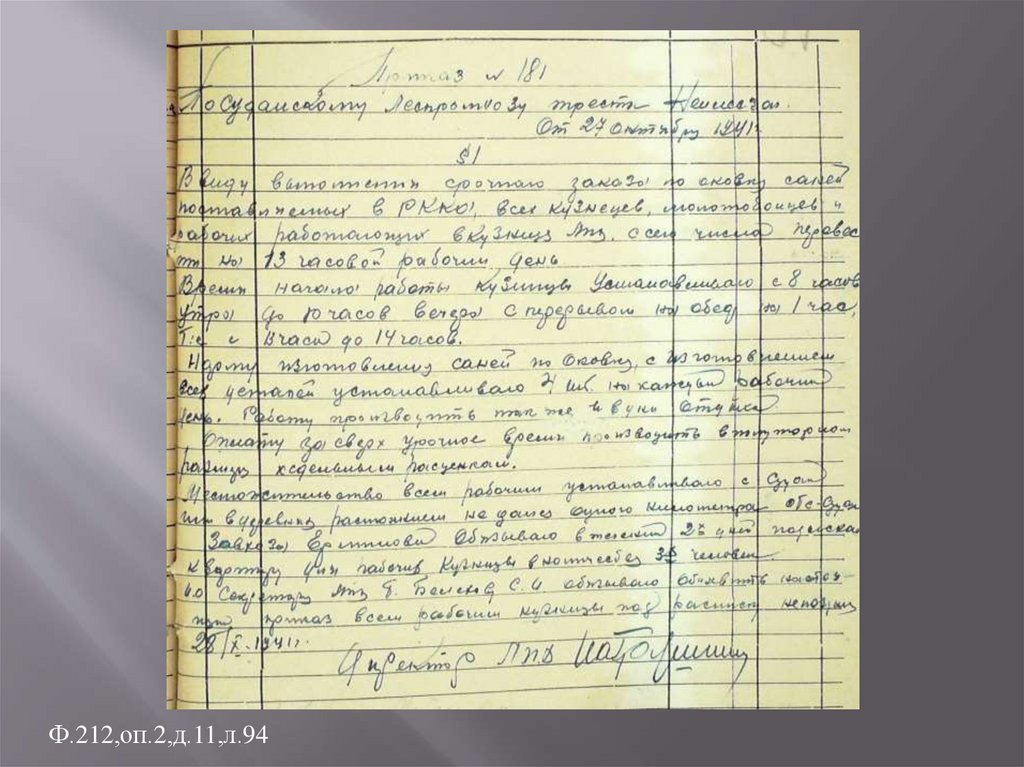 Приказ № 181
По Суданскому Леспромхозу треста
От 27 октября 1941 г.
§ 1
В виду выполнения срочного заказа по оковки саней
поставляемых в РККА, всех кузнецев, молотобойцев и
рабочих работающих в кузнице Лпх. с сего числа перевес
ти на 13 часовой рабочий день
Время начало работы кузницы устанавливаю с 8 часов
утра до 10 часов вечера с перерывом на обед на 1 час,
т.е с 13 часа до 14 часов.
Норму изготовления саней по оковки, с изготовлением
всех деталей устанавливаю шт. на каждый рабочий
день. Работу производить так же и в дни отдыха
Оплату за сверх урочное время производить в полуторном
размере к сдельным расценкам.
Местожительство всем рабочим устанавливаю с Суда
или в деревнях расположен не далее одного километра от с-Суда
Завхоза Обязываю в течении 2х дней подыскать
квартиру для рабочих кузницы в количестве человек
и.о Секретаря Лпх т. С.И. обязываю объявить настоя-
щий приказ всем рабочим кузницы под расписку
28/X-1941 г.
Директор Лпх
Ф.212,оп.2,д.11,л.94